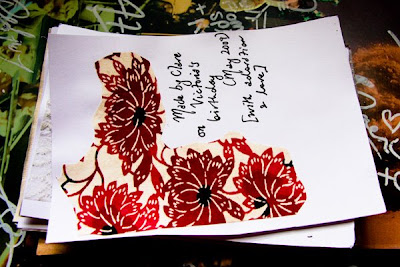 Made by Clare
Victoria's
on birthday
(May 2009)
[with adoration
& love]